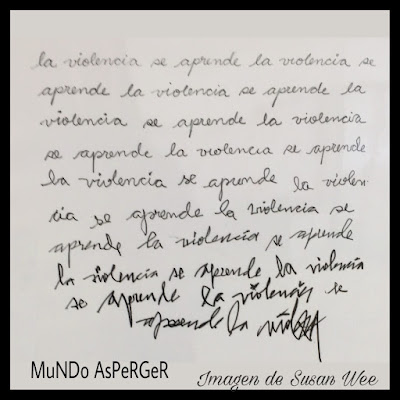 la violencia se aprende la violencia se
aprende la violencia se aprende la
violencia se aprende la violencia
se aprende la violencia se aprende
la violencia se aprende la violen-
cia se aprende la violencia se
aprende la violencia se aprende
la violencia se aprende la violencia
se aprende la violencia se
aprende la
MuNDo AsPeRGeR
Imagen de Susan Wee